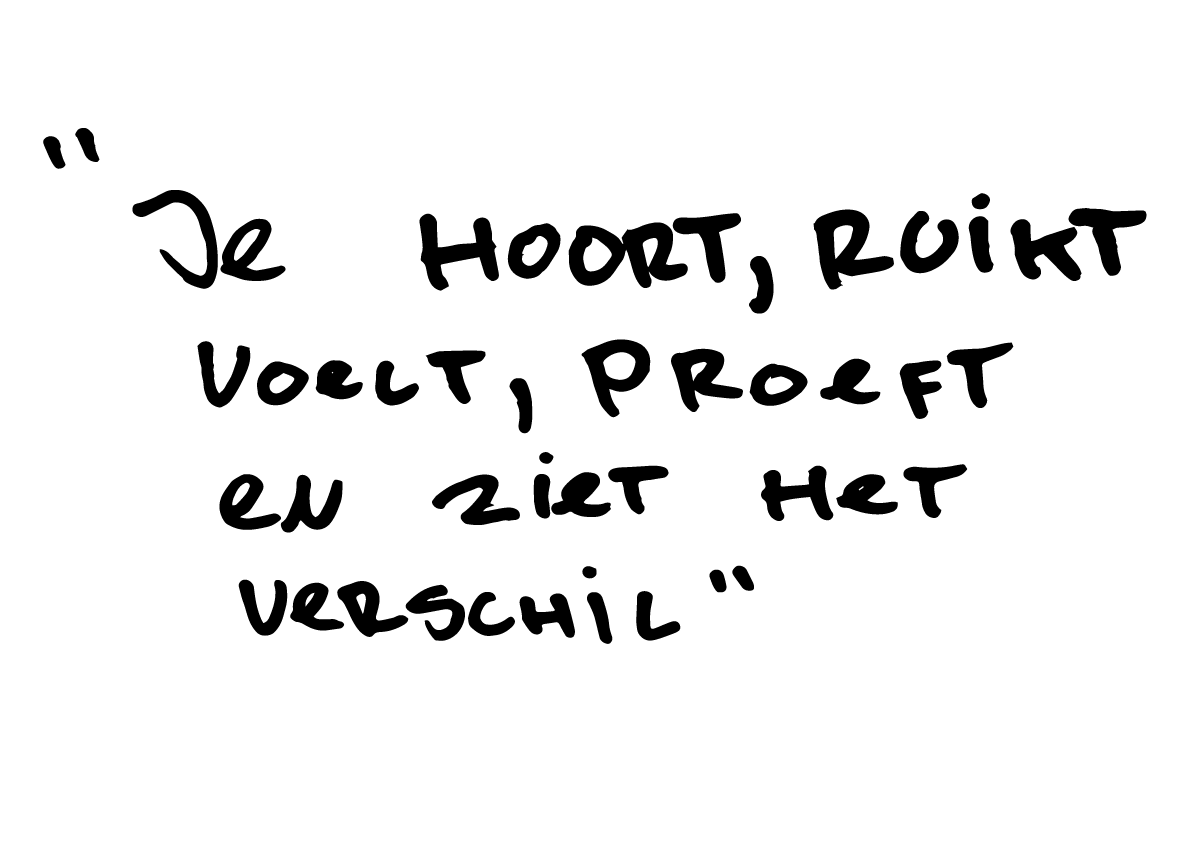 "Je HOORT, RUIKT
VOELT, PROEFT
en ziet Het
verschil"